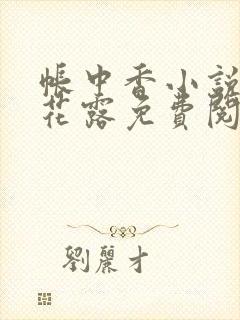 帳中香小說
花露免費閱
劉麗才